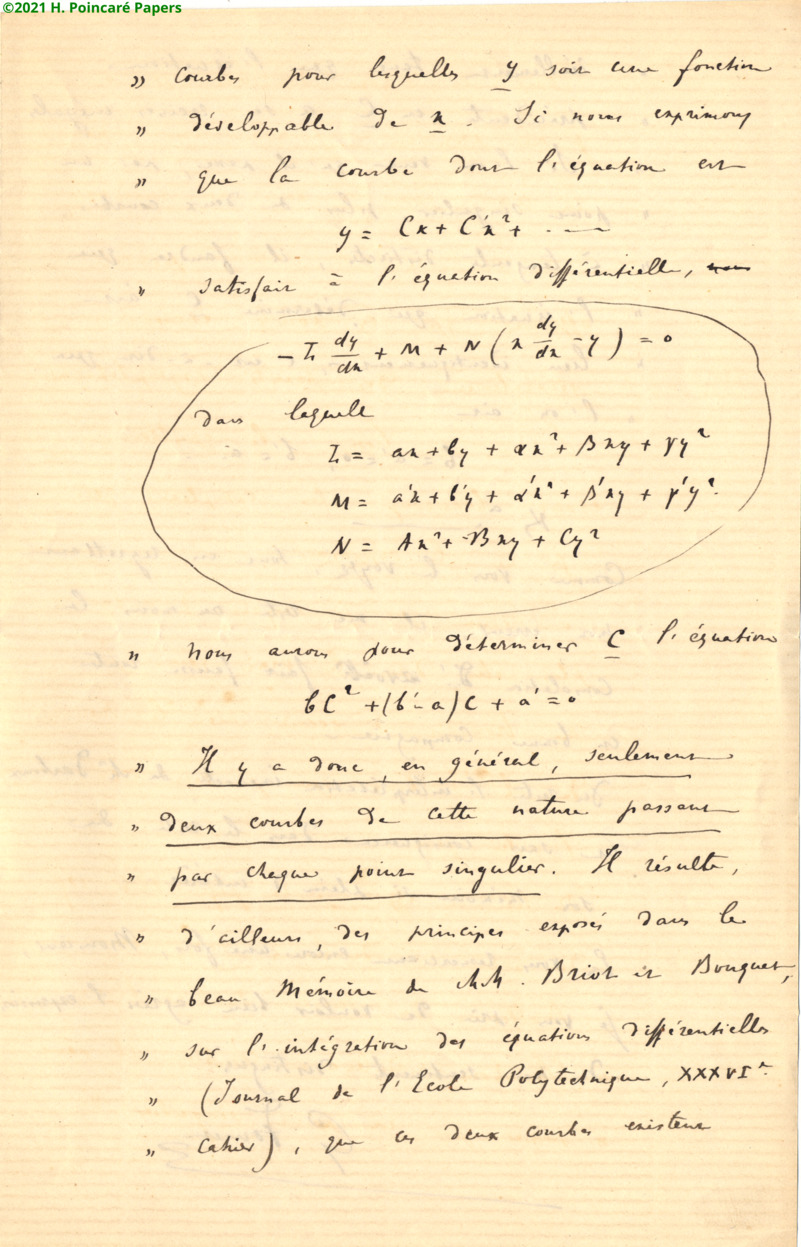 ©2021 H. Poincaré Papers
» Courbes pour lesquelles y soit une fonction
» développable de x. Si nous exprimons
» que la courbe dont l'équation est
y = Cx + C'x² + .....
» satisfait à l'équation différentielle, nous
- L dy/dx + M + N ( x dy/dx - y ) = 0
dans laquelle
L = ax + by + αx² + βxy + γy²
M = a'x + b'y + α'x² + β'xy + γ'y².
N = Ax² + Bxy + Cy²
» nous aurons pour déterminer C l'équation
bC² + (b' - a)C + a' = 0
» Il y a donc, en général, seulement
» deux courbes de cette nature passant
» par chaque point singulier. Il résulte,
» d'ailleurs, des principes exposés dans le
» beau Mémoire de MM. Briot et Bouquet,
» sur l'intégration des équations différentielles
» (Journal de l'Ecole Polytechnique, XXXVIe
» cahier), que ces deux courbes existent